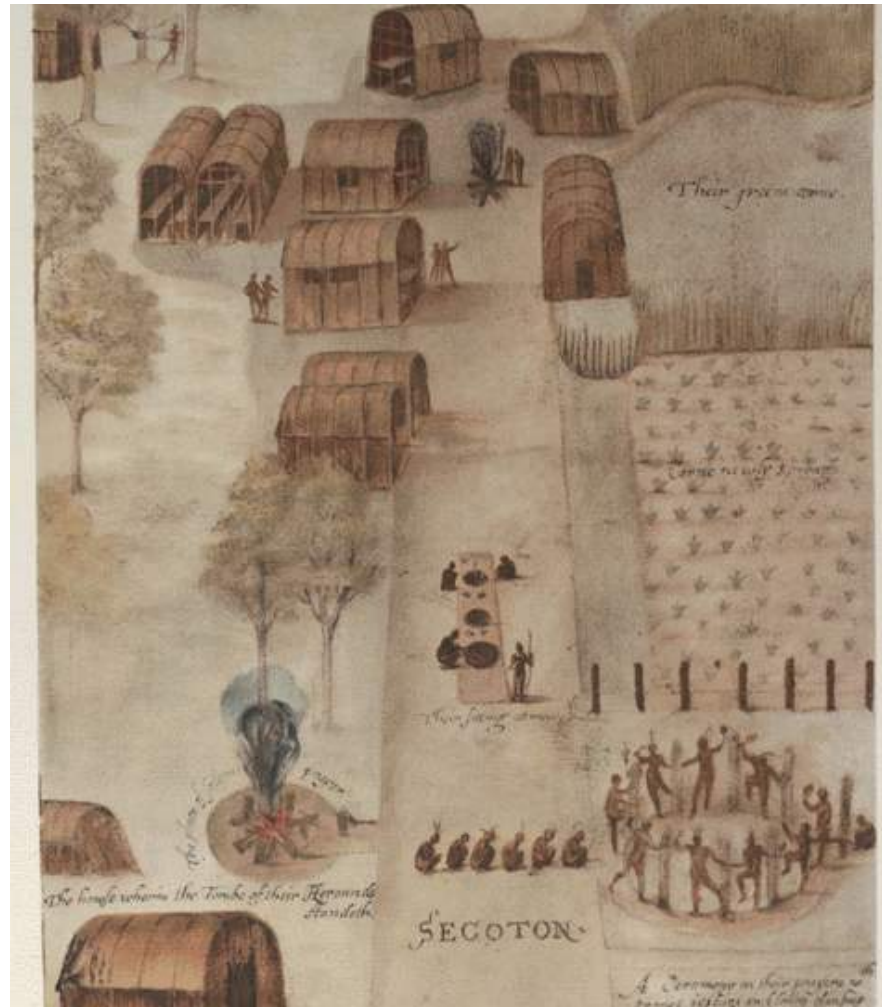 Their greene corne.
Corne newly sprong
Their sitting at meate
The place of solemne prayer
The house wherin the Tombe of their Herounds
standeth.
SECOTON.
A Ceremony in their prayers wth